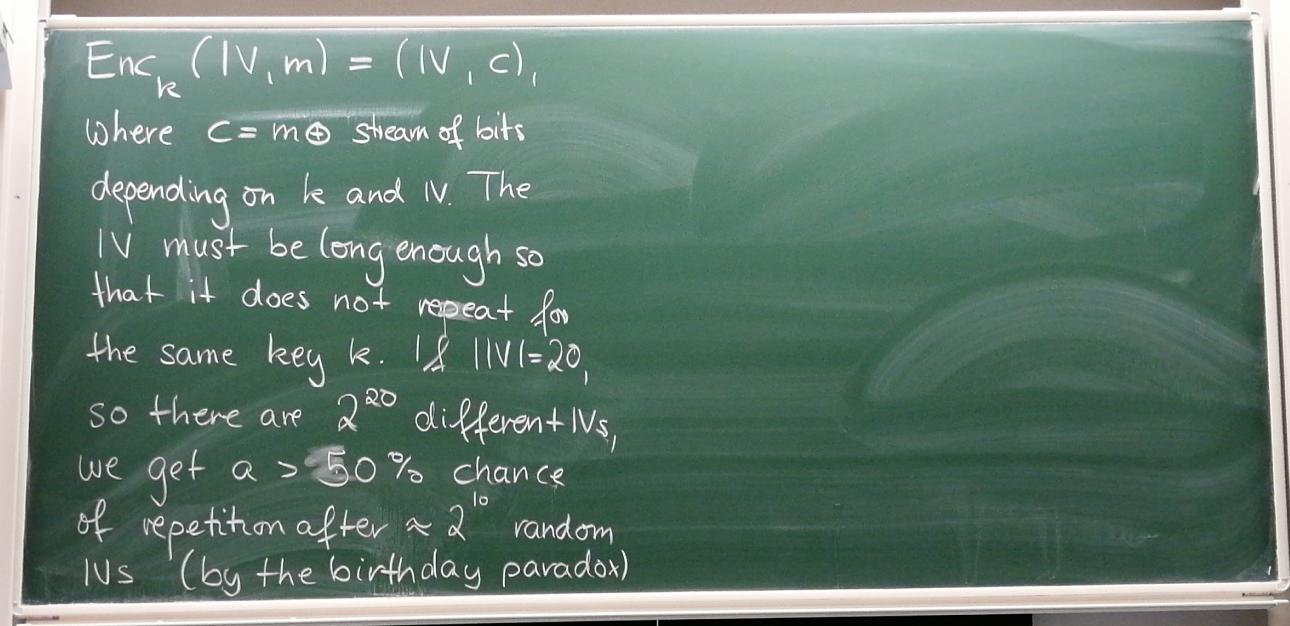 Enc_k (IV, m) = (IV, c),
where c = m ⊕ stream of bits
depending on k and IV. The
IV must be long enough so
that it does not repeat for
the same key k. If |IV|=20,
so there are 2^20 different IVs,
we get a > 50% chance
of repetition after ≈ 2^10 random
IVs (by the birthday paradox)